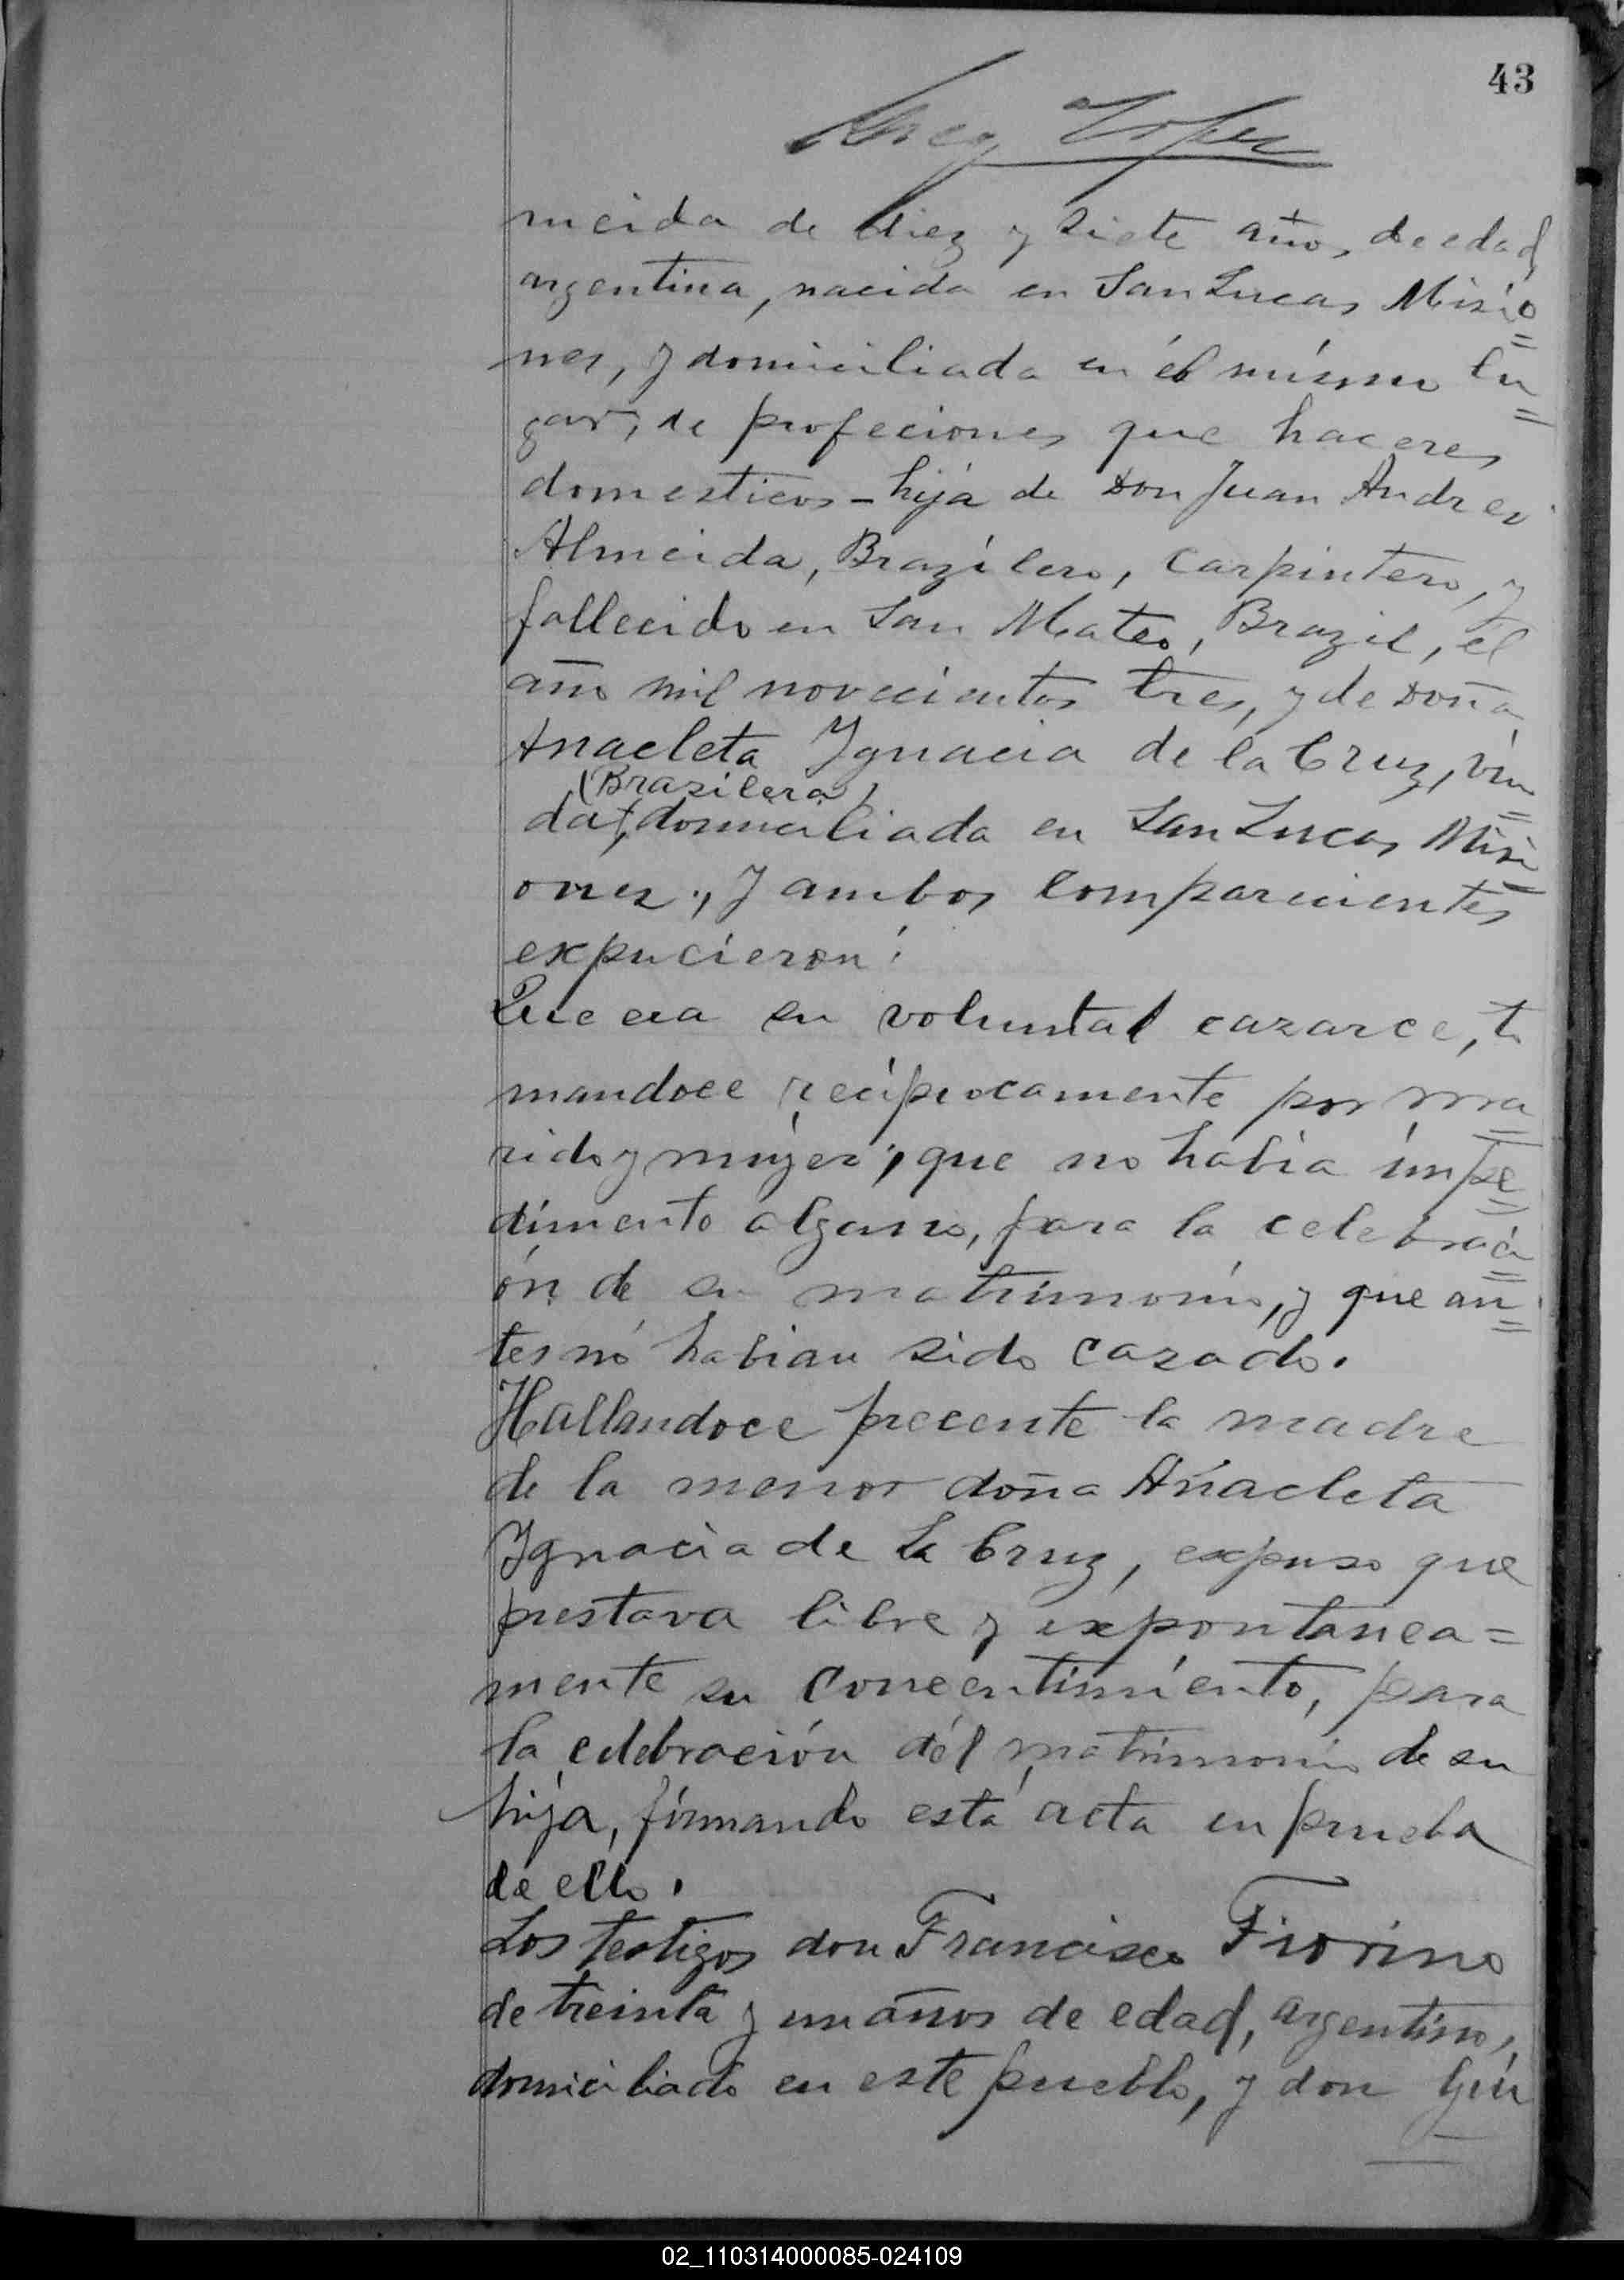 43
Lopez
meida de diez y siete años, de edad,
argentina, nacida en San Lucas Misio=
nes, y domiciliada en él mismo lu=
gar, de profeciones que haceres
domesticos - hija de Don Juan Andres
Almeida, Brazilero, Carpintero, y
fallecido en San Mateo, Brazil, él
año mil novecientos tres, y de Doña
Anacleta Ygnacia de la Cruz, viu=
(Brasilera)
da, domiciliada en San Lucas Misi=
ones, y ambos comparecientes
expucieron:
Que era su voluntad cazarce, to
mandoce reciprocamente por ma=
rido y mujer, que no habia impe=
dimento alguno, para la celebraci=
ón de su matrimonio, y que an=
tes no habian sido cazado.
Hallandoce precente la madre
de la menor doña Anacleta
Ygnacia de la Cruz, expuso que
prestava libre y expontanea=
mente su concentimiento, para
la celebración dél matrimonio de su
hija, firmando está acta en prueba
de ello.
Los testigos don Francisco Fiorino
de treinta y un años de edad, argentino,
domiciliado en este pueblo, y don
02_110314000085-024109